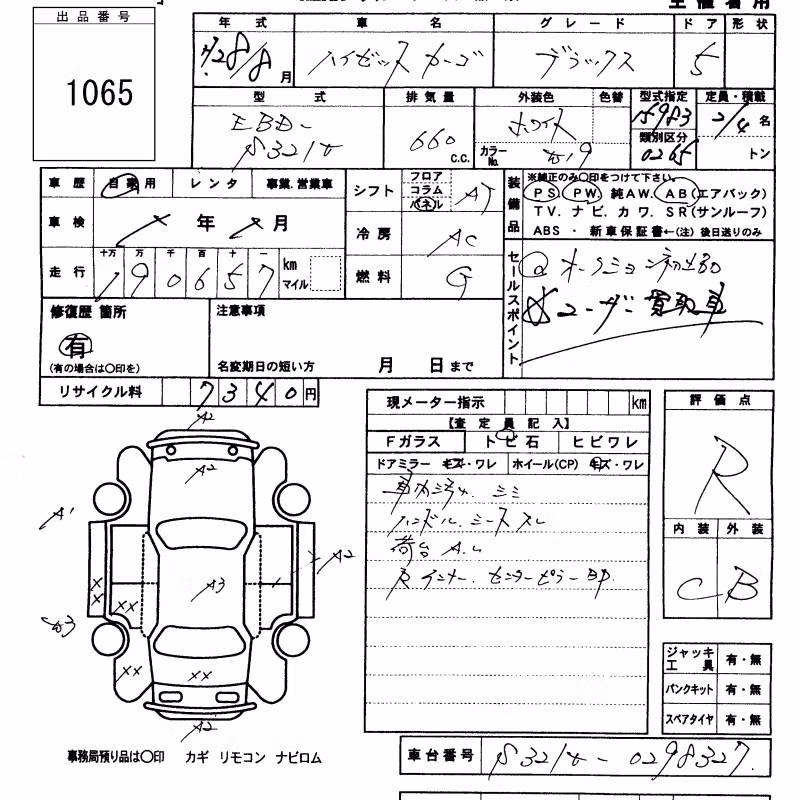 出品番号
1065
年式 車名 グレード ドア 形状
H28/8月 ハイゼットカーゴ デラックス 5
型式 排気量 外装色 色替 型式指定 定員・積載
EBD-
S321V 660 C.C. ホワイト カラーNo. W19 15983 2/4名
類別区分 0265 トン
車歴 自家用 レンタ 事業.営業車
車検 年 月
走行 十万 万 千 百 十 一
190657 km マイル
シフト フロア コラム パネル AT
冷房 AC
燃料 G
装備品
※純正のみ〇印をつけて下さい。
PS. PW. 純AW. AB(エアバック)
TV. ナビ. カワ. SR(サンルーフ)
ABS ・ 新車保証書←(注) 後日送りのみ
セールスポイント
オークション初出品
☆ユーザー買取車
修復歴 箇所
有
(有の場合は〇印を)
注意事項
名変期日の短い方 月 日まで
リサイクル料 7340円
現メーター指示 km
【査定員記入】
Fガラス トビ石 ヒビワレ
ドアミラー キズ・ワレ ホイール(CP) キズ・ワレ
車内汚れ. シミ
ハンドル. シースレ
荷台 A.U
R インナー. センターピラー BP.
評価点
R
内装 外装
C B
ジャッキ工具 有・無
パンクキット 有・無
スペアタイヤ 有・無
A2
A2
A1
A2
XX
A3
XX
W3
XX
XX
A2
事務局預り品は〇印 カギ リモコン ナビロム
車台番号 S321V-0298327